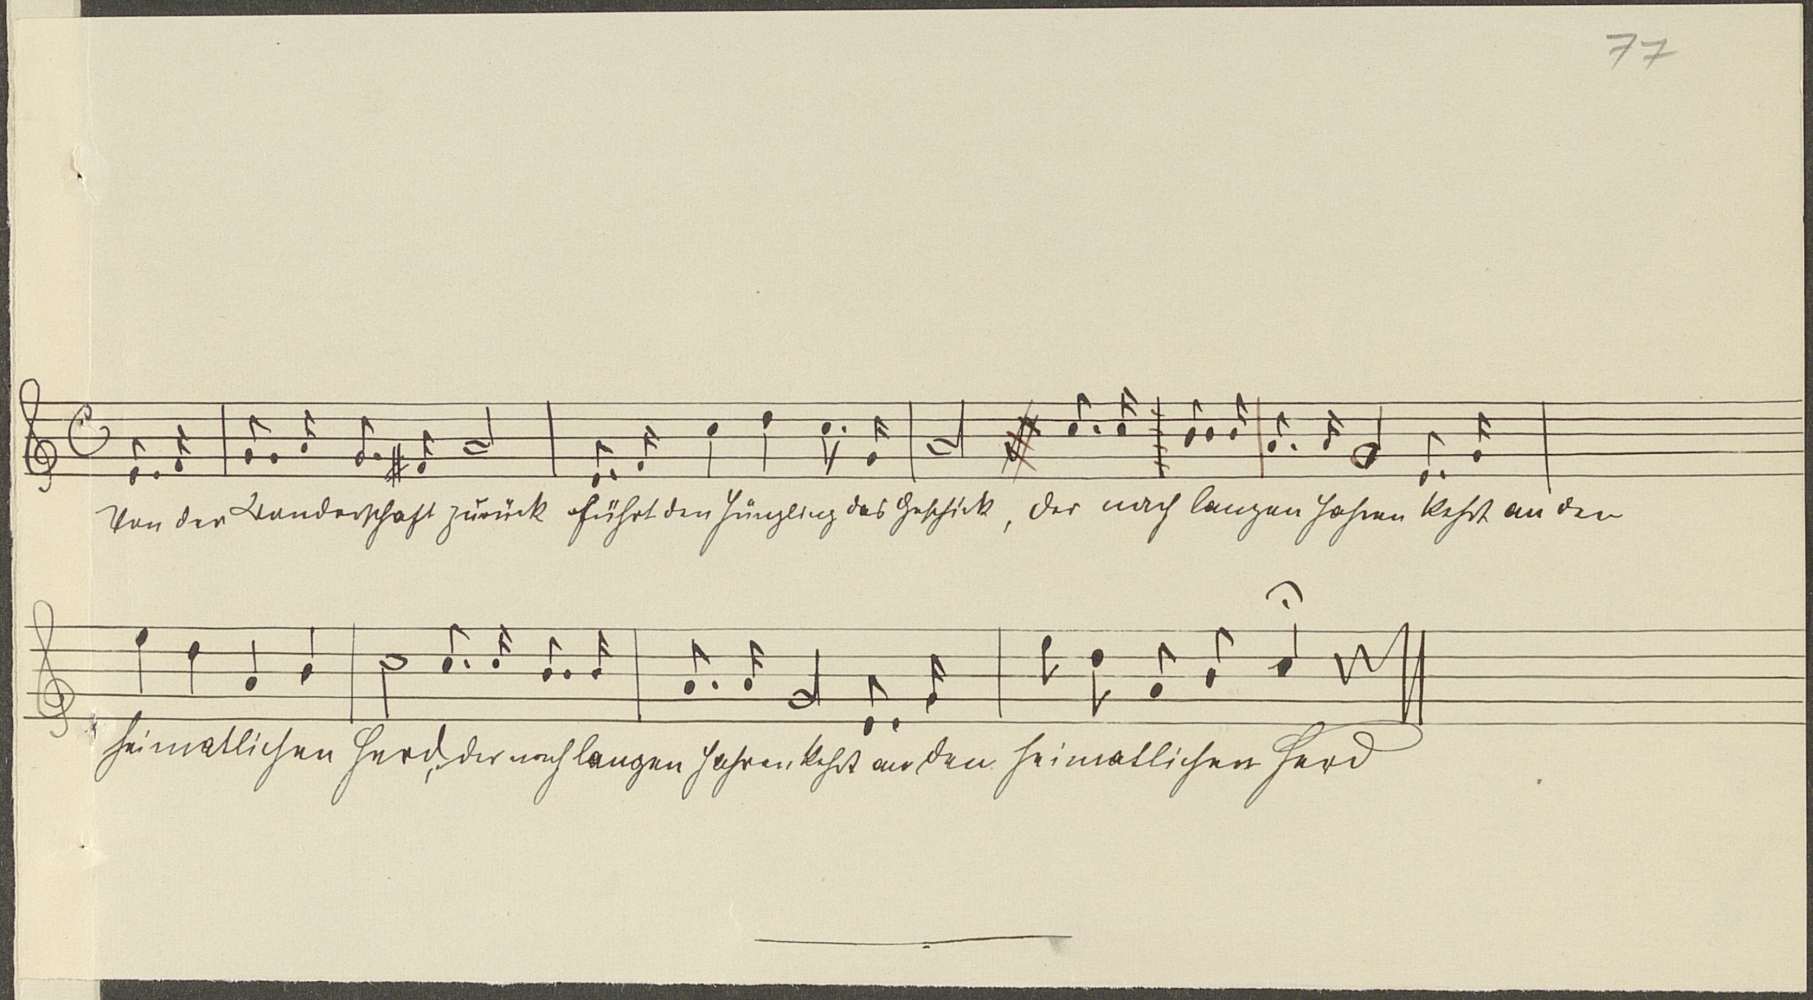 77
Von der Wanderschaft zurück führt den Jüngling das Geschick, der nach langen Jahren kehrt an den
heimatlichen Herd, der nach langen Jahren kehrt an den heimatlichen Herd